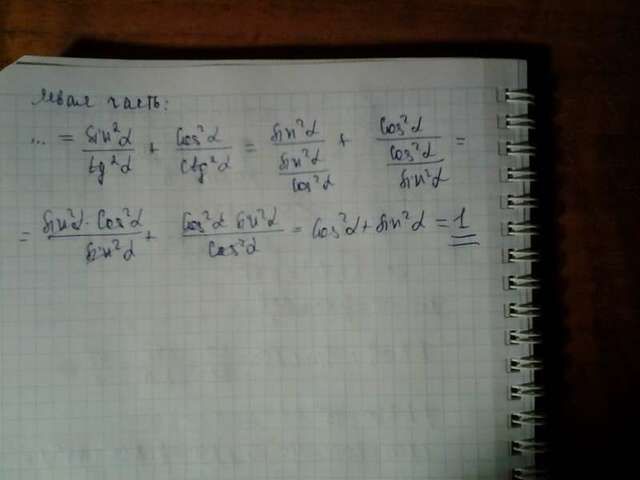 Левая часть:
... = sin²α/tg²α + cos²α/ctg²α = sin²α/(sin²α/cos²α) + cos²α/(cos²α/sin²α) =
= sin²α · cos²α/sin²α + cos²α · sin²α/cos²α = cos²α + sin²α = 1